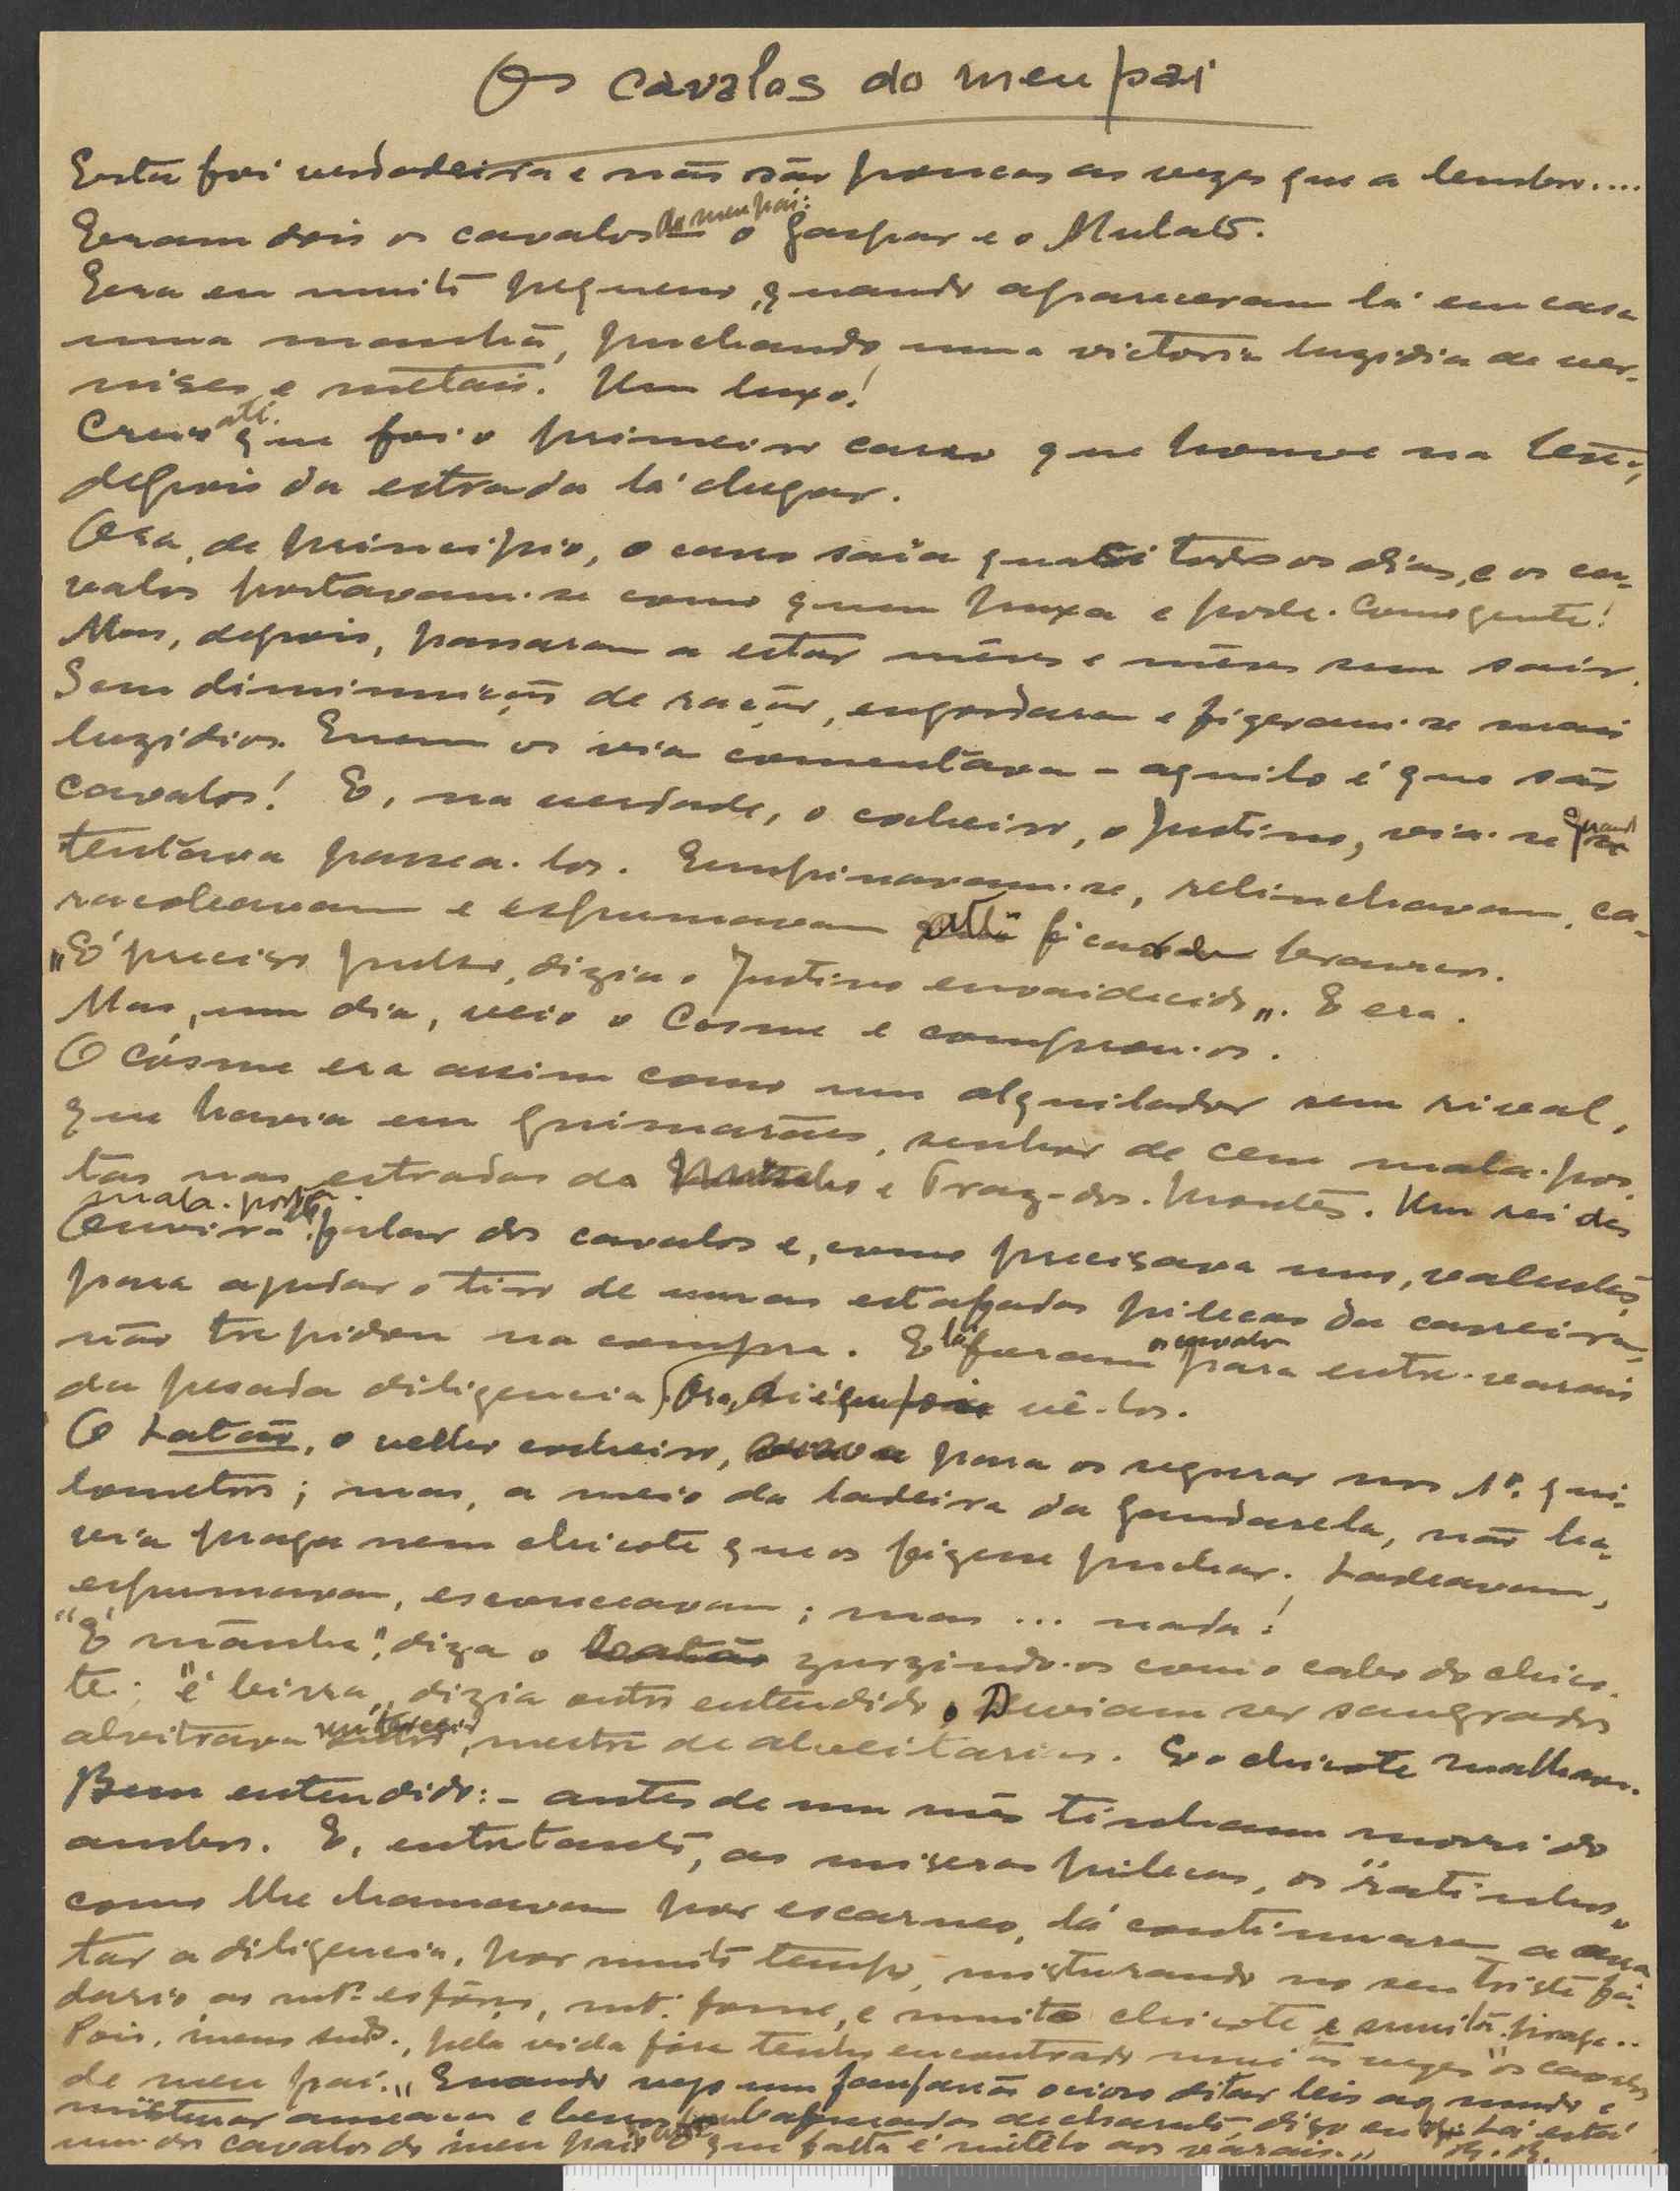 Os cavalos do meu pai
Esta foi verdadeira e não são poucas as vezes que a lembro....
Eram dois os cavalos do meu pai: o Gaspar e o Mulato.
Era eu muito pequeno, quando apareceram lá em casa
uma manhã, puchando uma victoria luzidia de ver-
nises e metais. Um luxo!
Creio até que foi o primeiro carro que houve na terra,
depois da estrada lá chegar.
Ora, de principio, o carro saía quasi todos os dias, e os ca-
valos portavam-se como quem puxa e pode. Como gente!
Mas, depois, passaram a estar mêses e mêses sem sair.
Sem diminuição de ração, engordaram e fizeram-se mais
luzidios. Quem os via comentava - aquilo é que são
cavalos! E, na verdade, o cocheiro, o Justino, via-se quando
tentava passea-los. Empinavam-se, relinchavam, ca-
racoleavam e espumavam até ficarem brancos.
"É preciso pulso, dizia o Justino envaidecido". E era.
Mas, um dia, veio o Cosme e comprou-os.
O Cósme era assim como um alquilador sem rival,
que havia em Guimarães, senhor de cem mala-pos-
tas nas estradas do Minho e Traz-dos-Montes. Um rei da
mala-posta.
Ouvira falar dos cavalos e, como precisava uns, valentes,
para ajudar o tiro de umas estafadas pilecas da carreira,
não trepidou na compra. E lá foram os cavalos para entre-varais
da pesada diligencia. Ora, aí é que foi vê-los.
O Latão, o velho cocheiro, para os segurar nos 1os. qui-
lometros; mas, a meio da ladeira da Gandarela, não ha-
via praga nem chicote que os fizesse puchar. Ladeavam,
espumavam, escouceavam; mas ... nada!
"É mânha", dizia o Latão zurzindo-os com o cabo do chico-
te; "é birra", dizia outro entendido. Deviam ser sangrados
alvitrava um terceiro, mestre de alveitarias. E o chicote malhava.
Bem entendido: - antes de um mês tinham morrido
ambos. E, entretanto, as miseras pilecas, os "ratinhos"
como lhe chamavam por escarneo, lá continuaram a arras-
tar a diligencia, por muito tempo, misturando no seu triste fa-
dario as mto. esfôrço, mta. fome, e muito chicote e muita praga...
Pois, meus snrs., pela vida fóra tenho encontrado muitas vezes "os cavalos
de meu pai." Quando vejo um fanfarão ocioso ditar leis ao mundo e
misturar ameaças e berros baforadas de charuto, digo eu: Lá está
um dos cavalos do meu pai! O que falta é mêtelo aos varais." R. R.